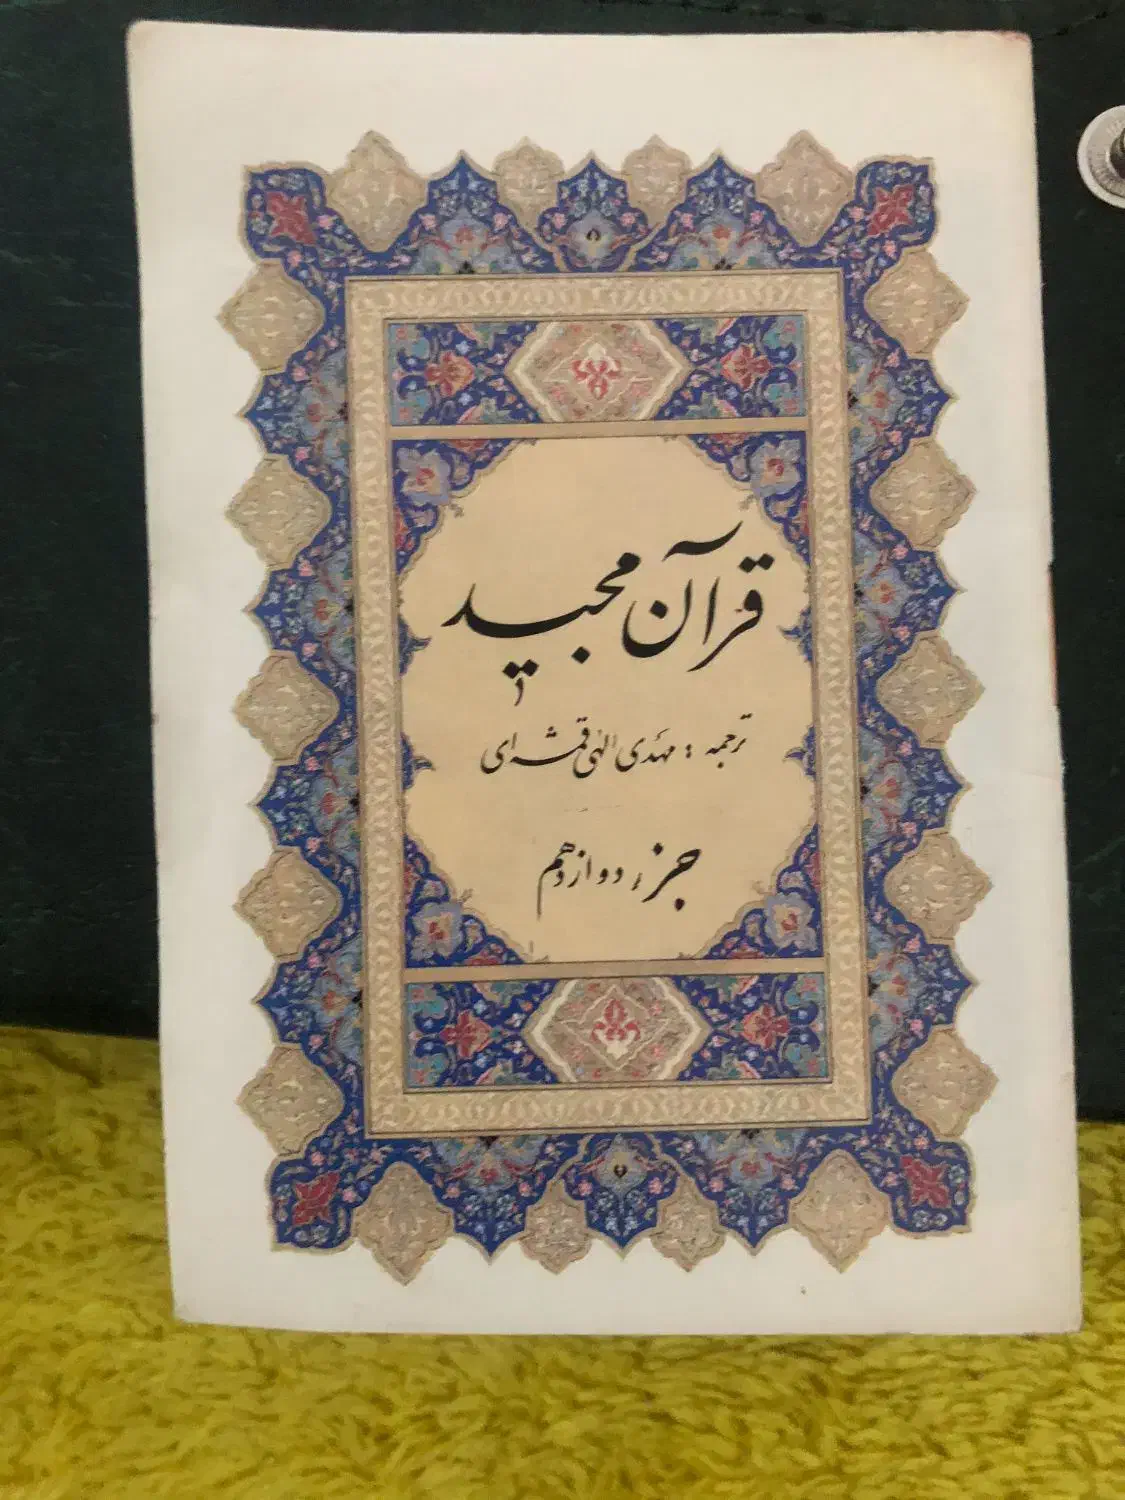 قرآن مجید
ترجمه : مهدی الهی قمشه ای
جزء دوازدهم